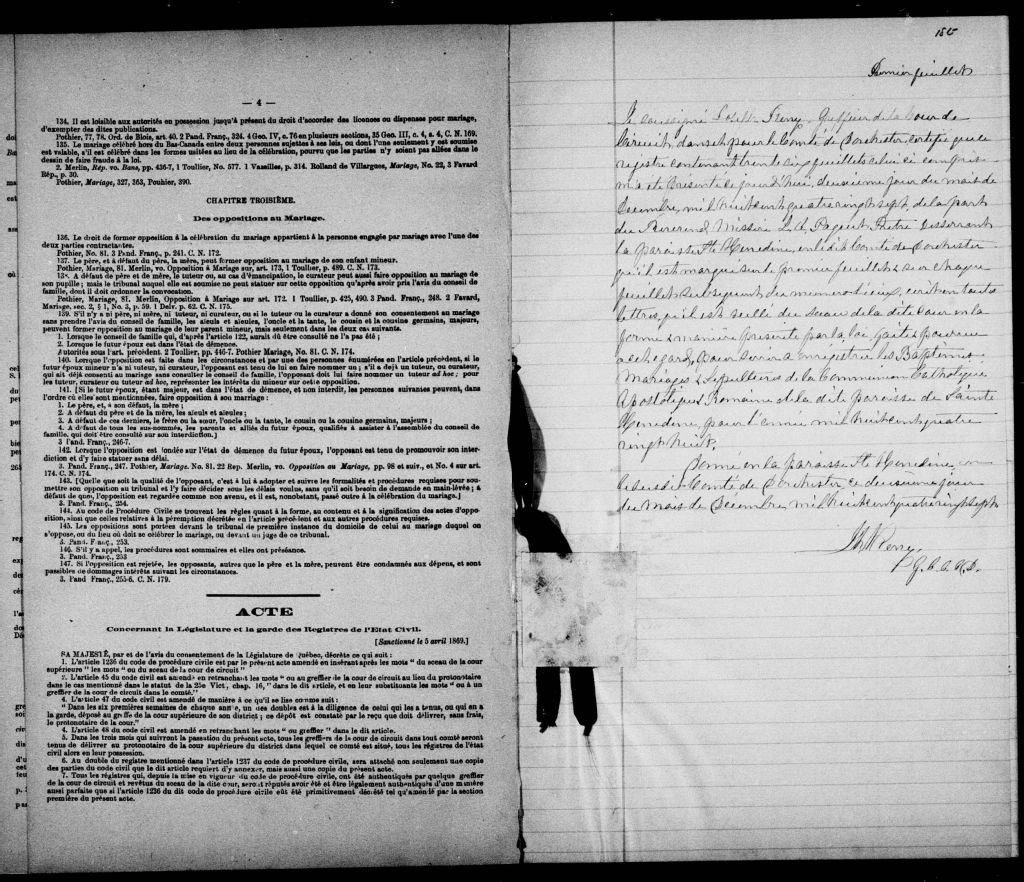 — 4 —
134. Il est loisible aux autorités en possession jusqu'à présent du droit d'accorder des licences ou dispenses pour mariage,
d'exempter des dites publications.
Pothier, 77, 78. Ord. de Blois, art. 40. 2 Pand. Franç., 324. 4 Geo. IV, c. 76 en plusieurs sections, 35 Geo. III, c. 4, s. 4, C. N. 169.
135. Le mariage célébré hors du Bas-Canada entre deux personnes sujettes à ses lois, ou dont l'une seulement y est soumise
est valable, s'il est célébré dans les formes usitées au lieu de la célébration, pourvu que les parties n'y soient pas allées dans le
dessin de faire fraude à la loi.
2. Merlin, Rép. vo. Bans, pp. 436-7, 1 Toullier, No. 577. 1 Vazeilles, p. 314. Rolland de Villargues, Mariage, No. 22, 3 Favard
Rép., p. 30.
Pothier, Mariage, 327, 363, Pouhier, 390.
CHAPITRE TROISIÈME.
Des oppositions au Mariage.
136. Le droit de former opposition à la célébration du mariage appartient à la personne engagée par mariage avec l'une des
deux parties contractantes.
Pothier, No. 81. 3 Pand. Franç., p. 241. C. N. 172.
137. Le père, et à défaut du père, la mère, peut former opposition au mariage de son enfant mineur.
Pothier, Mariage, 81. Merlin, vo. Opposition à Mariage sur, art. 173, 1 Toullier, p. 489. C. N. 173.
138. A défaut de père et de mère, le tuteur ou, au cas d'émancipation, le curateur peut aussi faire opposition au mariage de
son pupille; mais le tribunal auquel elle est soumise ne peut statuer sur cette opposition qu'après avoir pris l'avis du conseil de
famille, dont il doit ordonner la convocation.
Pothier, Mariage, 81. Merlin, Opposition à Mariage sur art. 172. 1 Toullier, p. 425, 490. 3 Pand. Franç., 248. 2 Favard,
Mariage, sec. 2, § 1, No. 3, p. 59. 1 Delv. p. 62. C. N. 175.
139. S'il n'y a ni père, ni mère, ni tuteur, ni curateur, ou si le tuteur ou le curateur a donné son consentement au mariage
sans prendre l'avis du conseil de famille, les aïeuls et aïeules, l'oncle et la tante, le cousin et la cousine germains, majeurs,
peuvent former opposition au mariage de leur parent mineur, mais seulement dans les deux cas suivants.
1. Lorsque le conseil de famille qui, d'après l'article 122, aurait dû être consulté ne l'a pas été;
2. Lorsque le futur époux est dans l'état de démence.
Autorités sous l'art. précédent. 2 Toullier, pp. 446-7. Pothier Mariage, No. 81. C. N. 174.
140. Lorsque l'opposition est faite dans les circonstances et par une des personnes énumérées en l'article précédent, si le
futur époux mineur n'a ni tuteur, ni curateur, l'opposant est tenu de lui en faire nommer un; s'il a déjà un tuteur, ou curateur,
qui ait déjà consenti au mariage sans consulter le conseil de famille, l'opposant doit lui faire nommer un tuteur ad hoc; pour
les tuteur, curateur ou tuteur ad hoc, représenter les intérêts du mineur sur cette opposition.
141. [Si le futur époux, étant majeur, est dans l'état de démence, et non interdit, les personnes suivantes peuvent, dans
l'ordre où elles sont mentionnées, faire opposition à son mariage:
1. Le père, et, à son défaut, la mère;
2. A défaut du père et de la mère, les aïeuls et aïeules;
3. A défaut de ces derniers, le frère ou la sœur, l'oncle ou la tante, le cousin ou la cousine germains, majeurs;
4. A défaut de tous les sus-nommés, les parents et alliés du futur époux, qualifiés à assister à l'assemblée du conseil de
famille, qui doit être consulté sur son interdiction.]
3 Pand. Franç., 246-7.
142. Lorsque l'opposition est fondée sur l'état de démence du futur époux, l'opposant est tenu de promouvoir son inter-
diction et d'y faire statuer sans délai.
3. Pand. Franç., 247. Pothier, Mariage. No. 81. 22 Rep. Merlin, vo. Opposition au Mariage, pp. 98 et suiv., et No. 4 sur art.
174. C. N. 174.
143. [Quelle que soit la qualité de l'opposant, c'est à lui à adopter et suivre les formalités et procédures requises pour sou-
mettre son opposition au tribunal et l'y faire décider sous les délais voulus, sans qu'il soit besoin de demande en main-levée; à
défaut de quoi, l'opposition est regardée comme non avenue, et il est, nonobstant, passé outre à la célébration du mariage.]
3. Pand. Franç., 254.
144. Au code de Procédure Civile se trouvent les règles quant à la forme, au contenu et à la signification des actes d'oppo-
sition, ainsi que celles relatives à la péremption décrétée en l'article précédent et aux autres procédures requises.
145. Les oppositions sont portées devant le tribunal de première instance du domicile de celui au mariage duquel on
s'oppose, ou du lieu où doit se célébrer le mariage, ou devant un juge de ce tribunal.
3. Pand. Franç., 253.
146. S'il y a appel, les procédures sont sommaires et elles ont préséance.
3. Pand. Franç., 253
147. Si l'opposition est rejetée, les opposants, autres que le père et la mère, peuvent être condamnés aux dépens, et sont
passibles de dommages intérêts suivant les circonstances.
3. Pand Franç., 255-6. C. N. 179.
ACTE
Concernant la Législature et la garde des Registres de l'Etat Civil.
[Sanctionné le 5 avril 1869.]
SA MAJESTÉ, par et de l'avis du consentement de la Législature de Québec, décrète ce qui suit:
1. L'article 1236 du code de procédure civile est par le présent acte amendé en insérant après les mots "du sceau de la cour
supérieure" les mots "ou du sceau de la cour de circuit"
2. L'article 45 du code civil est amendé en retranchant les mots "ou au greffier de la cour de circuit au lieu du protonotaire
dans le cas mentionné dans le statut de la 25e Vict, chap. 16," dans le dit article, et en leur substituants les mots "ou à un
greffier de la cour de circuit dans le comté."
4. L'article 47 du code civil est amendé de manière à ce qu'il se lise comme suit:
"Dans les six premières semaines de chaque année, un des doubles est à la diligence de celui qui les a tenus, ou qui en a
la garde, déposé au greffe de la cour supérieure de son district; ce dépôt est constaté par le reçu que doit délivrer, sans frais,
le protonotaire de la cour."
4. L'article 48 du code civil est amendé en retranchant les mots "ou greffier" dans le dit article.
5. Dans les trois mois qui suivront la passation du présent acte, tous les greffiers de la cour de circuit dans tout comté seront
tenus de délivrer au protonotaire de la cour supérieure du district dans lequel ce comté est situé, tous les registres de l'état
civil alors en leur possession.
6. Au double du registre mentionné dans l'article 1237 du code de procédure civile, sera attaché non seulement une copie
des parties du code civil que le dit article requiert d'y annexer, mais aussi une copie du présent acte.
7. Tous les registres qui, depuis la mise en vigueur du code de procédure civile, ont été authentiqués par quelque greffier
de la cour de circuit et revêtus du sceau de la dite cour, seront réputés avoir été et être légalement authentiqués d'une manière
aussi parfaite que si l'article 1236 du dit code de procédure civile eût été primitivement décrété tel qu'amendé par la section
première du présent acte.
Premier feuillet
Je soussigné Perry, Greffier de la Cour de
Circuit, dans et pour le Comté de Dorchester, certifie que ce
registre contenant trente cinq feuillets celui ci compris
m'a été présenté ce jourd'hui, deuxième jour du mois de
Décembre, mil huit cent quatre vingt sept, de la part
du Révérend Messire Paquet, Prêtre desservant
la paroisse Ste Henedine, en le dit Comté de Dorchester
qu'il est marqué sur le premier feuillet & sur chaque
feuillet subséquent du numéro d'iceux, écrit en toutes
lettres, qu'il est scellé du sceau de la dite Cour en la
forme & manière prescrite par la loi faite & pourvue
à cet égard, pour servir à enregistrer les Baptêmes,
Mariages & Sépultures de la Communion Catholique
Apostolique & Romaine de la dite paroisse de Sainte
Henedine, pour l'année mil huit cent quatre
vingt huit.
Donné en la paroisse Ste Henedine, en
le susdit Comté de Dorchester ce deuxième jour
du mois de Décembre, mil huit cent quatre vingt sept
Perry,